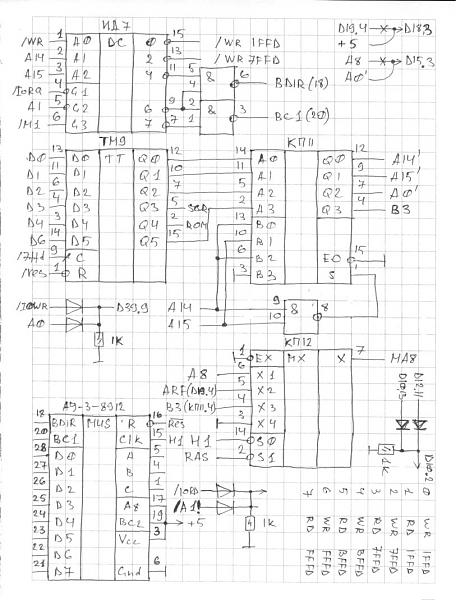 ИД7
Д19.4 Д18.3
+5
A8 Д15.3
A0'
/WR 1 A0 DC 0 15 /WR 1FFD
A14 2 A1 2 13 /WR 7FFD
A15 3 A2 4 11 5 & 6 BDIR (18)
/IORQ 4 G1 4
A1 5 G2 6 9 2 & 3 BC1 (20)
/M1 6 G3 7 7 1
ТМ9
КП11
D0 13 D0 TT Q0 12 14 A0 Q0 12 A14'
D1 11 D1 Q1 10 11 A1 Q1 9 A15'
D2 6 D2 Q2 7 5 A2 Q2 7 A0'
D3 3 D3 Q3 5 SCR 2 A3 Q3 4 B3
D4 4 D4 Q4 2 ROM 13 B0
D6 14 D5 Q5 15 10 B1
/7ffd 9 C 6 B2 EO 15
/res 1 R 3 B3 S 1
/IOWR D39.9 A14 9 & 8
A0 A15 10
1K
КП12
1 EX MX X 7 MA8
A8 6 X1
ARF(Д19.4) 5 X2
B3(КП11.4) 4 X3
3 X4
H1 H1 14 S0
RAS 2 S1
1K
Д10.2
AY-3-8912
18 BDIR MUS R 16 Res
20 BC1 Clk 15 H1
28 D0 A 5
27 D1 B 4
26 D2 C 1
25 D3 A8 17
24 D4 BC2 19 +5
23 D5 Vcc 3
22 D6
21 D7 Gnd 6
/IORD
/A1!
1K
0 WR 1FFD
1 RD 1FFD
2 WR 7FFD
3 RD 7FFD
4 WR BFFD
5 RD BFFD
6 WR FFFD
7 RD FFFD